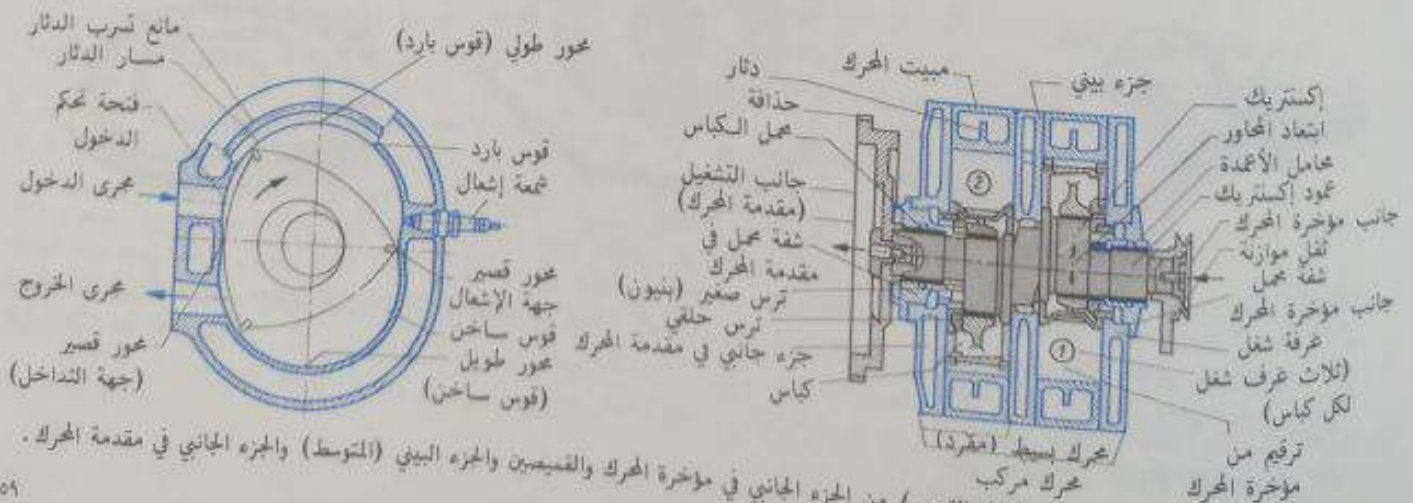 مانع تسرب الدثار
مسار الدثار
فتحة تحكم
الدخول
مجرى الدخول
مجرى الخروج
محور قصير
(جهة التداخل)
محور طولي (قوس بارد)
قوس بارد
شمعة إشعال
محور قصير
جهة الإشعال
قوس ساخن
محور طويل
(قوس ساخن)
دثار
حذافة
محمل الكباس
جانب التشغيل
(مقدمة المحرك)
شفة محمل في
مقدمة المحرك
ترس صغير (بنيون)
ترس حلقي
جزء جانبي في مقدمة المحرك
كباس
مبيت المحرك
جزء بيني
②
①
إكسنتريك
ابتعاد المحاور
محامل الأعمدة
عمود إكسنتريك
جانب مؤخرة المحرك
ثقل موازنة
شفة محمل
جانب مؤخرة المحرك
غرفة شغل
(ثلاث غرف شغل
لكل كباس)
ترقيم من
مؤخرة المحرك
محرك بسيط (مفرد)
محرك مركب
من الجزء الجانبي في مؤخرة المحرك والقميصين والجزء البيني (المتوسط) والجزء الجانبي في مقدمة المحرك.
٥٩